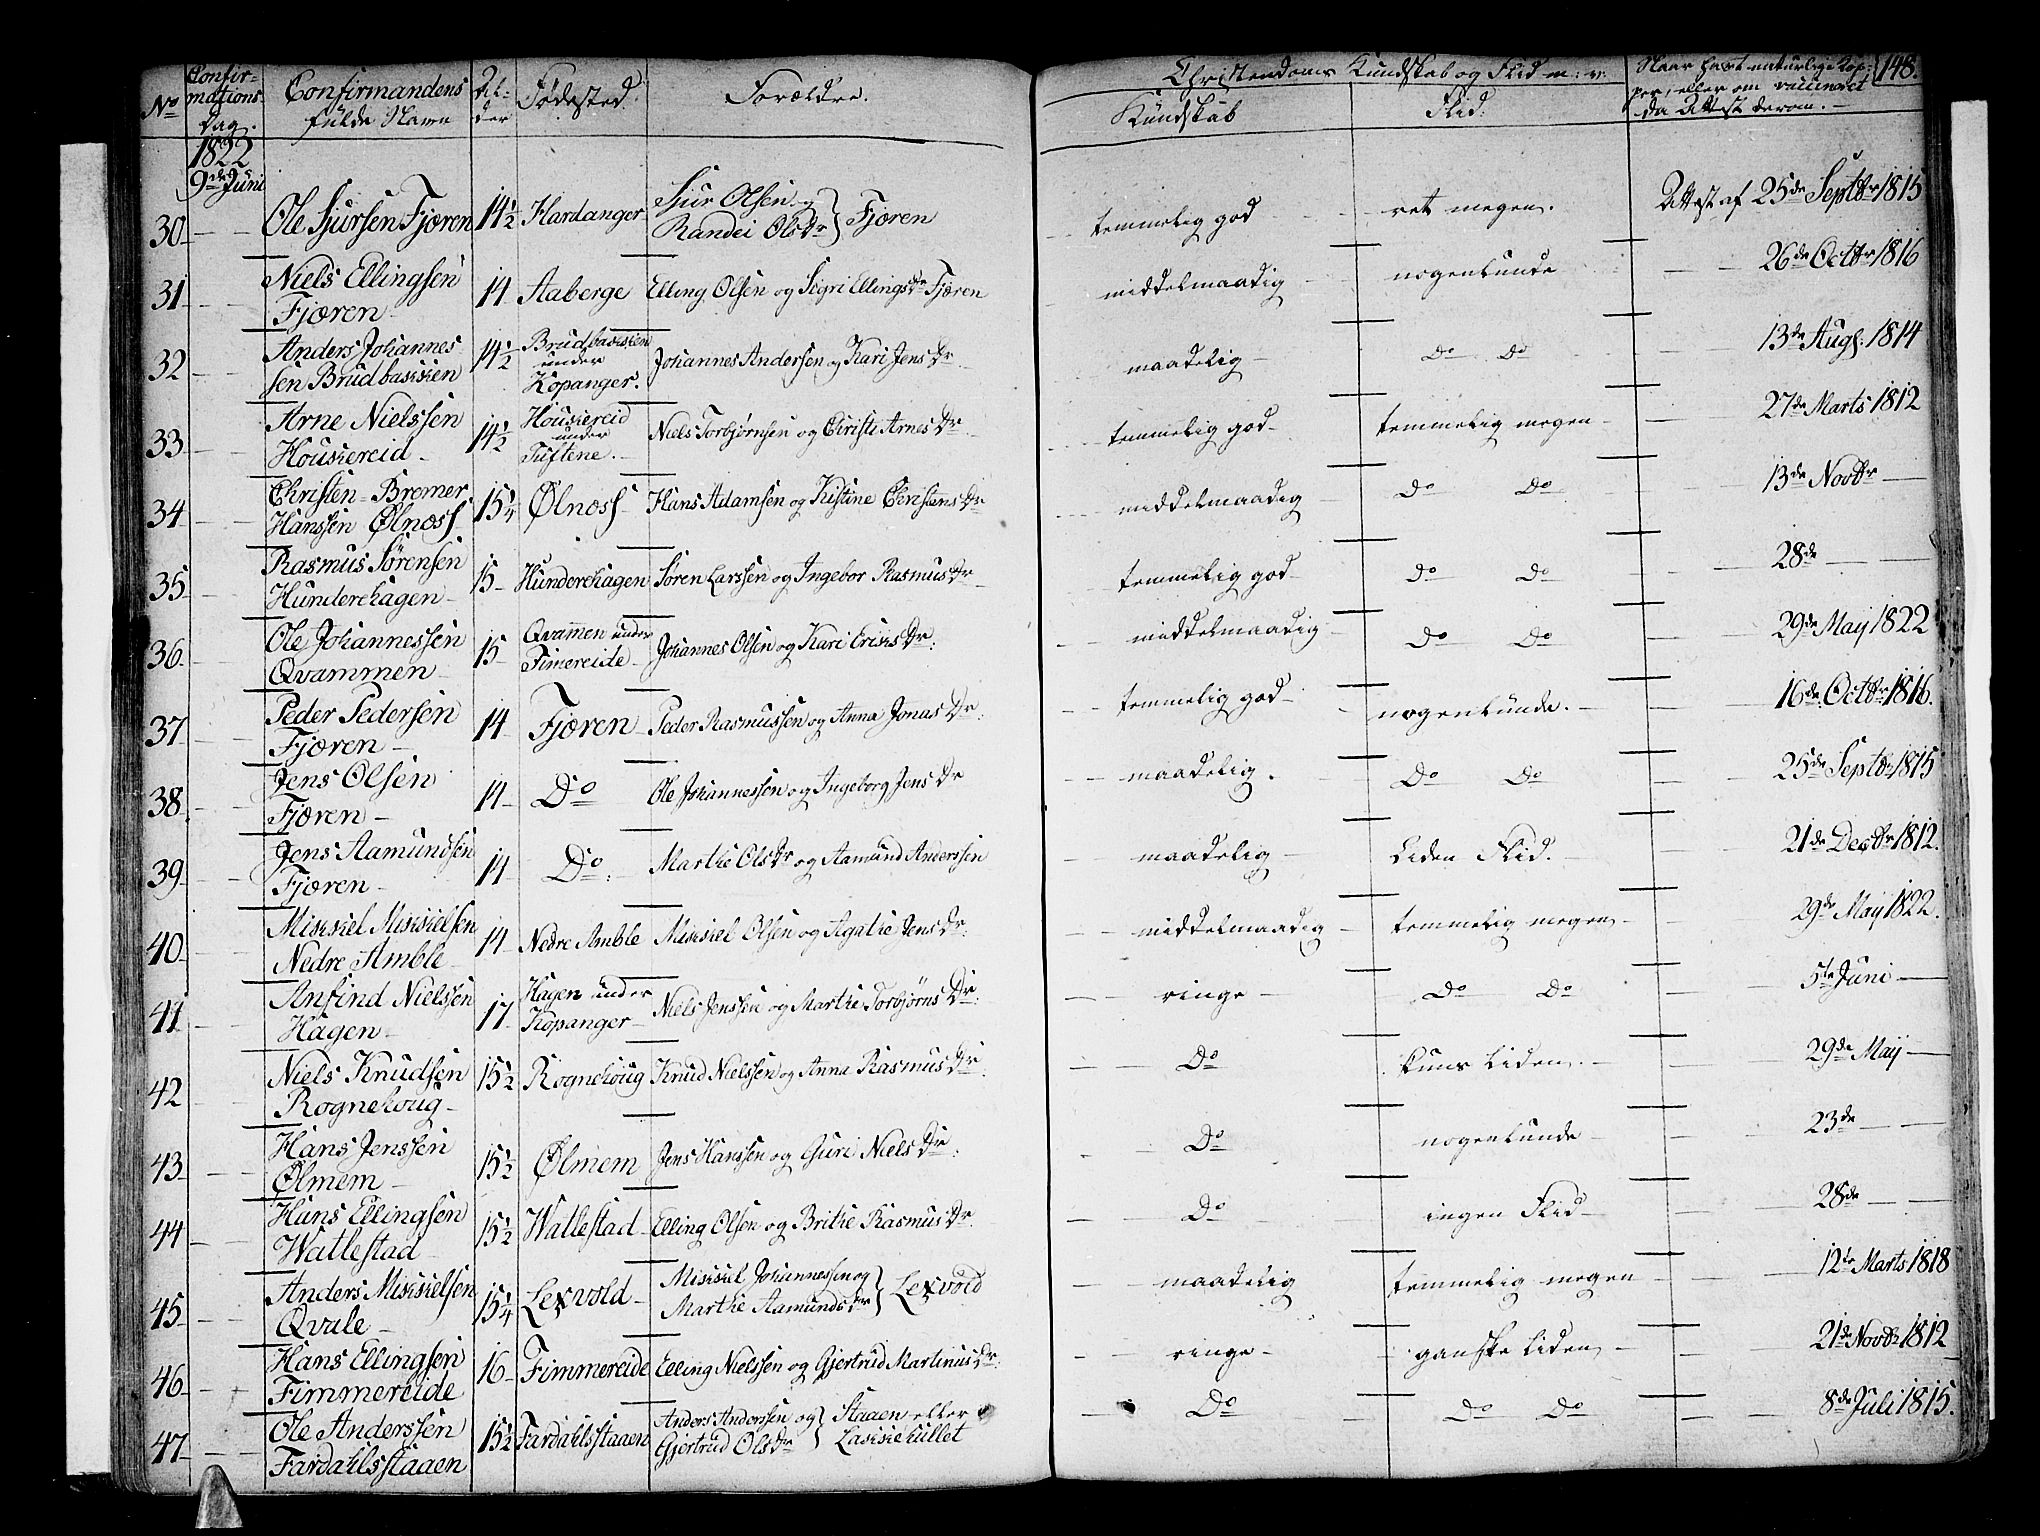 Christendoms Kundskab og Flid m: v:
Naar havt naturlige Kop-
148.
per, eller om vaccineret
da Attest derom.
No
Confir-
mations
Dag.
Confirmandens
fulde Navn
Al-
der
Fødested.
Forældre.
Kundskab
Flid.
1822
9de Juni
30 Ole Sjursen Fjæren 14½ Hardanger Sjur Olsen og
Randei Olsdr } Fjæren temmelig god ret megen. Attest af 25de Septbr 1815
31 Niels Ellingsen
Fjæren 14 Aaberge Elling Olsen og Sigri Ellingsdr Fjæren middelmaadig nogenlunde 26de Octbr 1816
32 Anders Johannes
sen Brudbakken 14½ Brudbakken
under
Kopanger. Johannes Andersen og Kari Jensdr maadelig Do Do 13de Aug. 1814
33 Arne Nielssen
Houkereid 14½ Houkereid
under
Tuftene. Niels Torbjørnsen og Christi Arnesdr temmelig god temmelig megen 27de Marts 1812
34 Christen Bremer
Hanssen Ølnæss 15¼ Ølnæss Hans Adamsen og Kistine Christensdr middelmaadig Do Do 13de Novbr
35 Rasmus Sørensen
Hunderehagen 15 Hunderehagen Søren Larssen og Ingebor Rasmusdr temmelig god Do Do 28de
36 Ole Johannessen
Qvammen 15 Qvammen under
Fimereide Johannes Olsen og Kari Eriksdr: middelmaadig Do Do 29de Maÿ 1822
37 Peder Pedersen
Fjæren 14 Fjæren Peder Rasmussen og Anna Jonasdr: temmelig god nogenlunde. 16de Octbr 1816.
38 Jens Olsen
Fjæren 14 Do Ole Johannessen og Ingeborg Jensdr maadelig. Do Do 25de Septbr 1815
39 Jens Aamundsen
Fjæren 14 Do: Marthe Olsdr og Aamund Anderssen maadelig Liden Flid. 21de Decbr 1812.
40 Mikkel Mikkelsen
Nedre Amble 14 Nedre Amble Mikkel Olsen og Agathe Jensdr: middelmaadig temmelig megen 29de Maÿ 1822.
41 Anfind Nielssen
Hagen 17 Hagen under
Kopanger Niels Jenssen og Marthe Torbjørnsdr: ringe Do Do 5te Juni
42 Niels Knudsen
Rognehoug 15½ Rognehoug Knud Nielssen og Anna Rasmusdr Do kuns liden. 29de Maÿ
43 Hans Jenssen
Ølmem 15½ Ølmem Jens Hanssen og Guri Nielsdr: Do nogenlunde 23de
44 Hans Ellingsen
Wallestad 15½ Wallestad Elling Olsen og Brithe Rasmusdr Do ingen Flid 28de
45 Anders Mikkelsen
Qvale 15¼ Lexvold Mikkel Johannessen og
Marthe Aamundsdr } Lexvold maadelig temmelig megen 12te Marts 1818
46 Hans Ellingsen
Fimmereide 16 Fimmereide Elling Nielssen og Gjertrud Martinusdr: ringe ganske liden 21de Novbr 1812
47 Ole Anderssen
Fardahlsstaaen 15½ Fardahlsstaaen Anders Anderssen og
Gjertrud Olsdr } Staaen eller
Lakkehullet Do Do Do 8de Juli 1815.